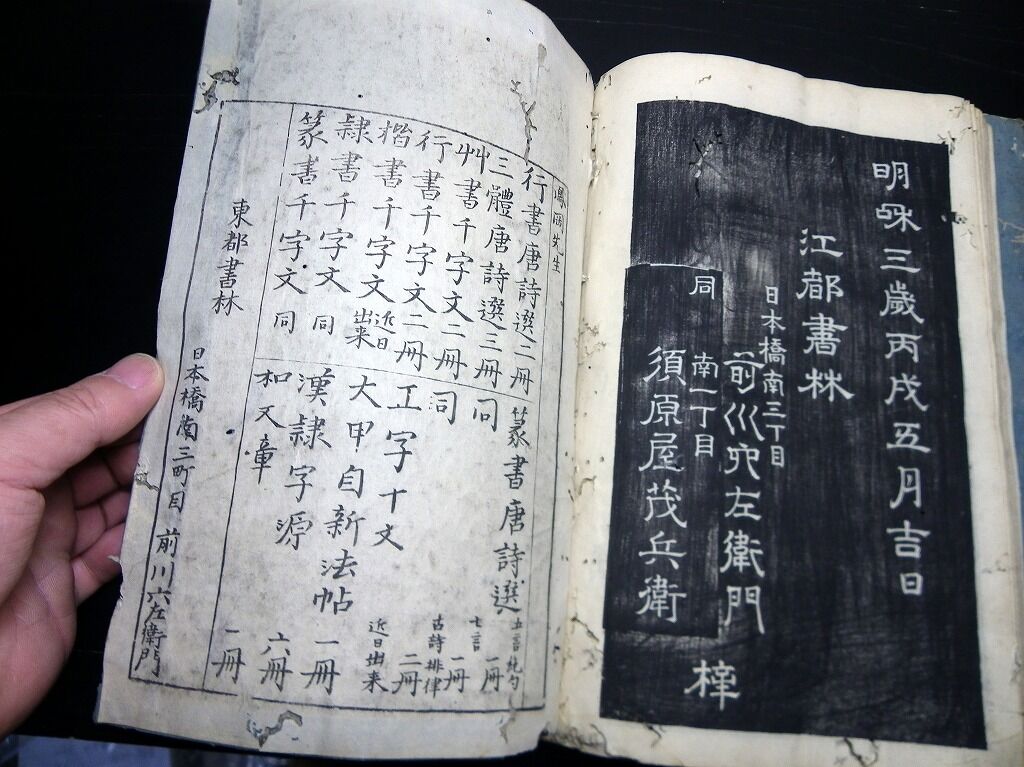 明咊三歲丙戌五月吉日
江都書林
日本橋南三丁目
前川六左衛門
同 南一丁目
須原屋茂兵衛
梓
先生
行書唐詩選二冊
三體唐詩選三冊
艸書千字文二冊
行書千字文二冊
楷書千字文 近日出来
隷書千字文 同
篆書千字文 同
篆書唐詩選 五言絶句 一冊
同 七言 一冊
同 古詩排律 二冊
工字十文 近日出来
大甲自新法帖 一冊
漢隷字源 六冊
和文章 一冊
東都書林 日本橋南三町目 前川六左衛門